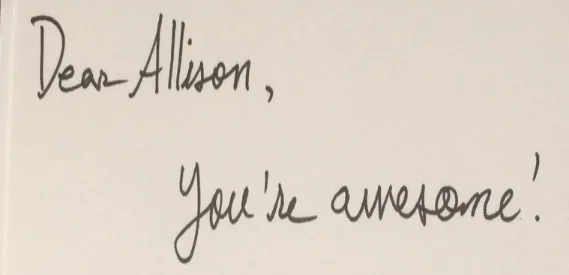 Dear Allison,
You're awesome!